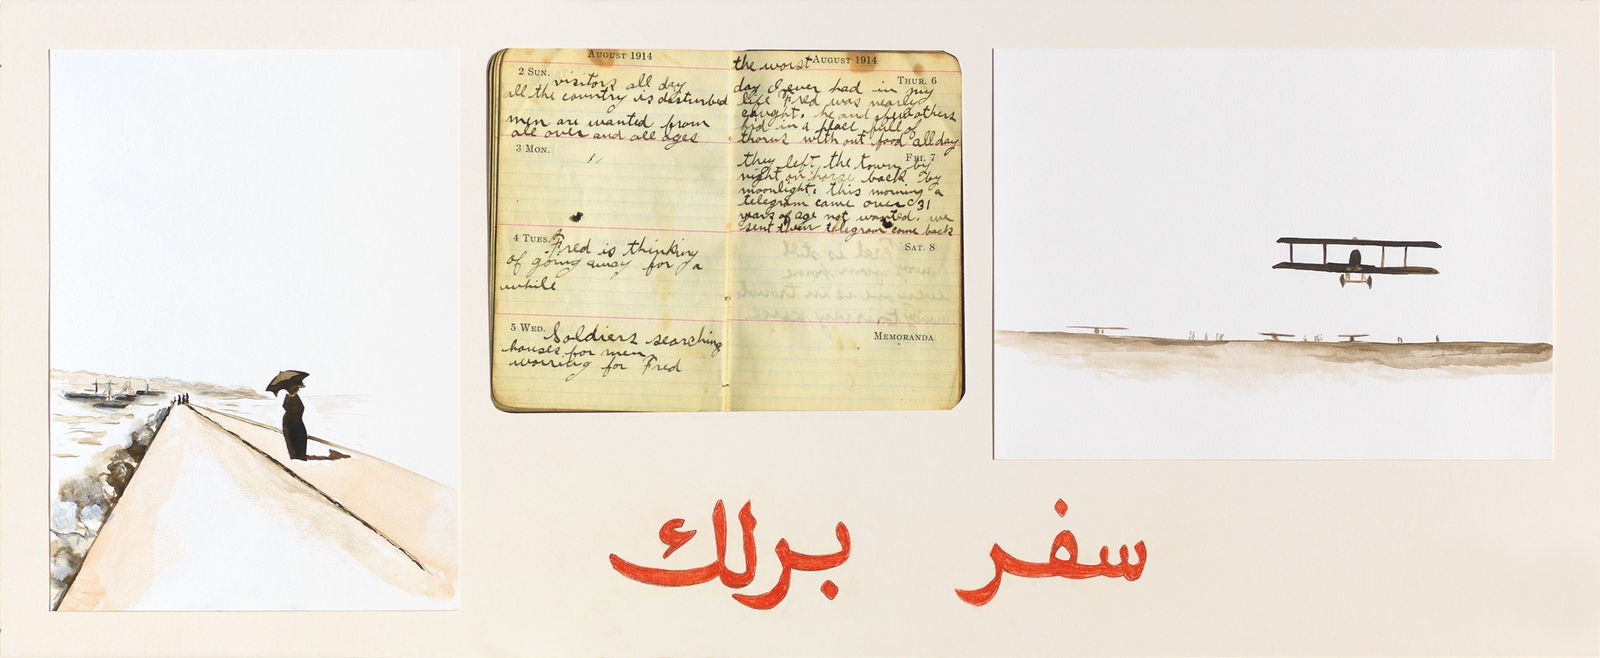 August 1914
2 Sun.
visitors all day
all the country is disturbed
men are wanted from
all over and all ages
3 Mon.
4 Tues.
Fred is thinking
of going away for a
while
5 Wed.
Soldiers searching
houses for men
worring for Fred
the worst
August 1914
Thur. 6
day I ever had in my
life Fred was nearly
caught. he and others
hid in a place full of
thorns with out food all day
Fri. 7
they left the town by
night on horse back by
moonlight. this morning a
telegram came over 31
years of age not wanted. we
sent telegram come back
Sat. 8
Memoranda
سفر برلك